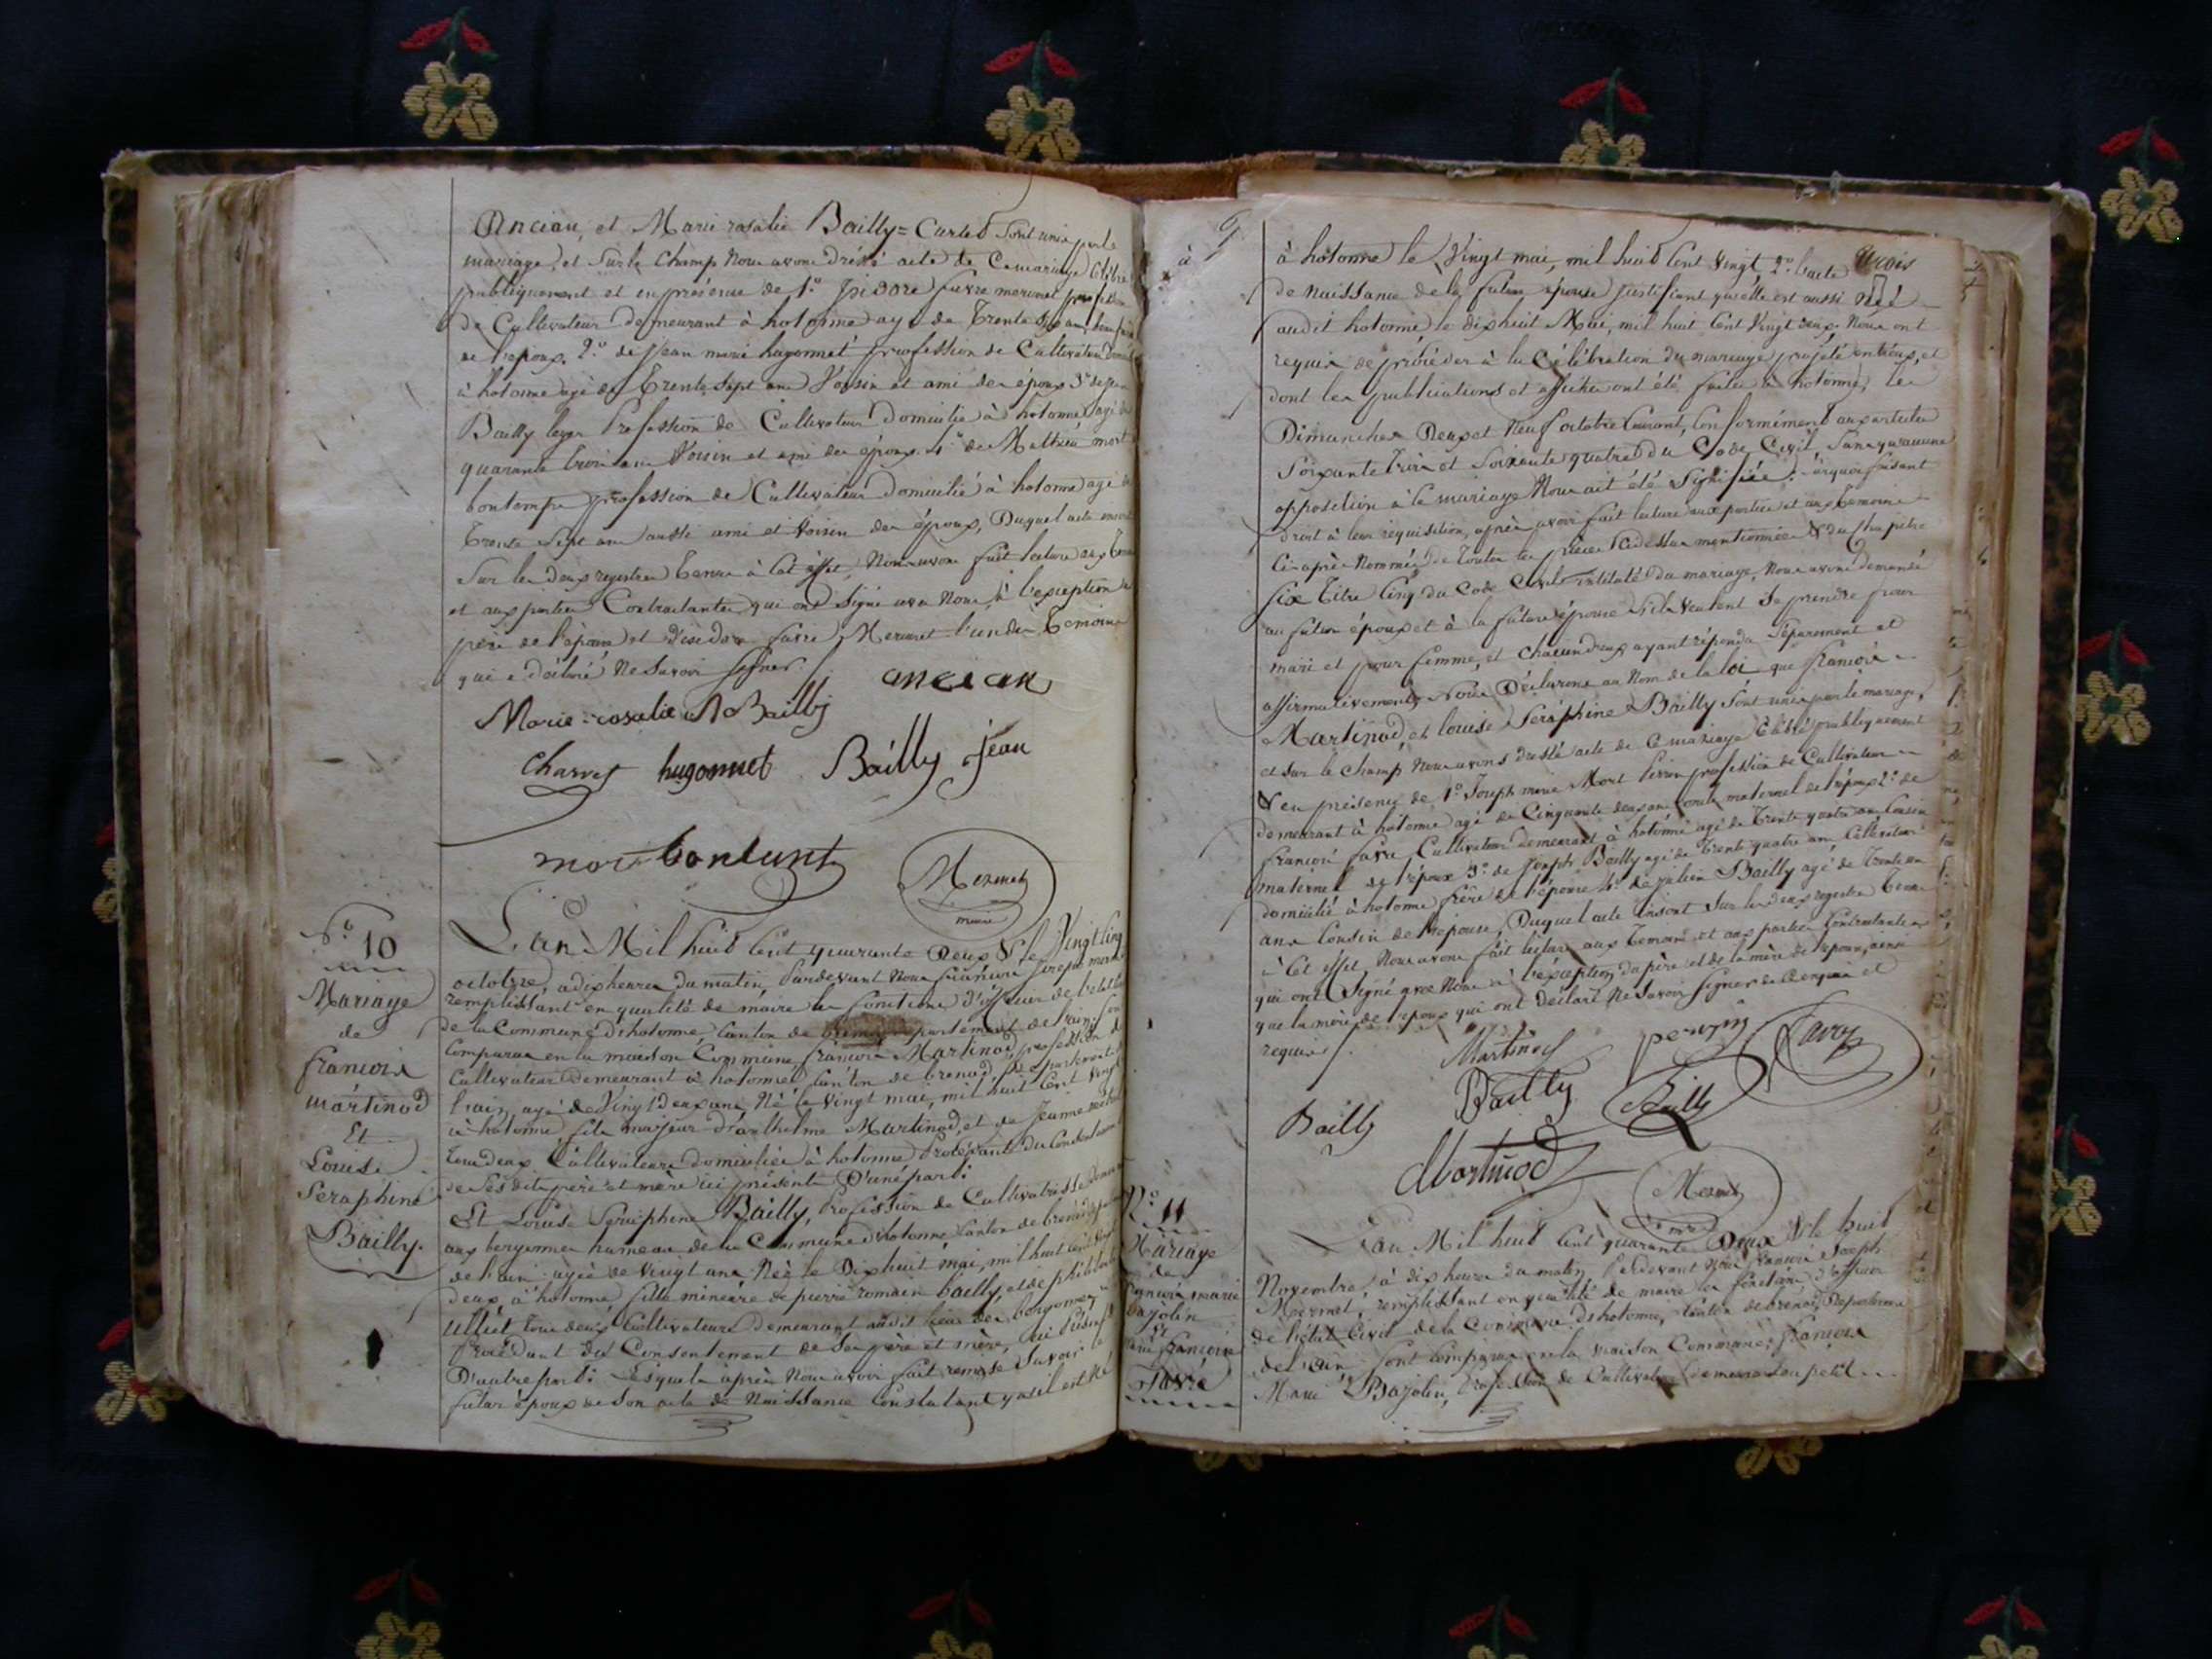 Ancian, et Marie rosalie Bailly = Curlet sont unis par le
mariage, et sur le champ Nous avons dréssé acte de ce mariage célébré
publiquement et en présence de 1.o isidore favre mermet profession
de Cultivateur demeurant à hotonne agé de Trente six ans, beau frère
de l'epoux. 2.o de jean marie hugonnet profession de Cultivateur
à hotonne agé de Trente sept ans Voisin et ami des époux 3.o de jean
Bailly leger Profession de Cultivateur Domicilié à hotonne agé de
quarante trois ans Voisin et ami des époux 4.o de Mathieu mort
bontemps profession de Cultivateur Domicilié à hotonne agé de
Trente Sept ans aussi ami et voisin des époux, Duquel acte inscrit
Sur les deux registres tenus à cet effet, Nous avons fait lecture aux Temoins
et aux parties Contractantes qui ont signé avec Nous, à l'exception du
père de l'époux et d'isidore favre Mermet l'un des Temoins
qui a déclaré Ne Savoir signer.
ancian
Marie-rosalie Bailly
Charvet hugonnet Bailly jean
mort bontemps
Mermet
maire
N.o 10
Mariage
de
françois
martinod
Et
Louise
Seraphine
Bailly.
L'an Mil huit Cent quarante Deux & le Vingt cinq
octobre, à dix heures du matin, Pardevant Nous françois joseph mermet
remplissant en qualité de maire les fonctions d'officier de l'etat civil
de la Commune d'hotonne, Canton de brenod département de l'ain, sont
Comparus en la maison Commune, françois Martinod, profession de
Cultivateur Demeurant à hotonne Canton de brenod, Département de
l'ain, agé de Vingt deux ans, Né le Vingt mai, mil huit Cent Vingt
à hotonne, fils majeur d'anthelme Martinod, et de Jeanne
Tous deux Cultivateurs domiciliés à hotonne Procédant du Consentement
de Ses dits père et mère ici présents D'une part.
Et Louise Seraphine Bailly, Profession de Cultivatrisse
aux bergonnes hameau de la Commune d'hotonne Canton de brenod
de l'ain agée de Vingt ans Née le Dix huit mai, mil huit Cent Vingt
deux à hotonne fille mineure de pierre romain bailly, et de philiberte
tous deux Cultivateurs demeurant audit lieu des bergonnes
Procédant du Consentement de Ses père et mère, ici Présents
D'autre part. Lesquels après Nous avoir fait remise Savoir le
futur époux de Son acte de Naissance Constatant qu'il est Né
à hotonne le Vingt mai, mil huit Cent Vingt, 2.o l'acte
de Naissance de la future épouse justifiant qu'elle est aussi Née
audit hotonne le dix huit Mai, mil huit Cent Vingt deux Nous ont
requis de procéder à la Célébration du mariage projeté entr'eux, et
dont les publications et affiches ont été faites à hotonne, les
Dimanches Deux et Neuf octobre Courant, Conformément aux articles
Soixante trois et Soixante quatre du Code Civil, Sans qu'aucune
opposition à ce mariage Nous ait été Signifiée: faisant
droit à leur réquisition, après avoir fait lecture aux parties et aux Temoins
Ci-après Nommés de toutes les pièces Ci-dessus mentionnées & du Chapitre
Six Titre Cinq du Code Civil intitulé Du mariage, Nous avons demandé
au futur époux et à la future épouse s'ils veulent se prendre pour
mari et pour femme, et chacun d'eux ayant répondu Séparement et
affirmativement, Nous Déclarons au Nom de la loi que françois
Martinod, et louise Seraphine Bailly Sont unis par le mariage,
et sur le champ Nous avons dressé acte de Ce mariage Célébré publiquement
& en présence de 1.o Joseph marie Mort Perrin profession de Cultivateur
demeurant à hotonne agé de Cinquante deux ans oncle maternel de l'époux 2.o de
françois favre, Cultivateur demeurant à hotonne agé de Trente quatre ans Cousin
maternel de l'époux 3.o de joseph Bailly agé de trente quatre ans Cultivateur
domicilié à hotonne frère de l'épouse 4.o de julien Bailly agé de Trente un
ans Cousin de l'épouse, Duquel acte Inscrit Sur les deux registres tenus
à Cet effet, Nous avons fait lecture aux Temoins et aux parties Contractantes
qui ont Signé avec Nous à l'exception du père et de la mère de l'epoux, ainsi
que la mère de l'épouse qui ont Déclaré Ne Savoir signer de Ce enquis et
requis.
Martinod perrin favre
Bailly Bailly Bailly
Martinod
Mermet
N.o 11
Mariage
de
françois marie
Bajolin
et
françoise
favre
L'an Mil huit Cent quarante Deux & le huit
Novembre à dix heures du matin Pardevant Nous françois Joseph
Mermet, remplissant en qualité de maire les fonctions d'officier
de l'etat Civil de la Commune d'hotonne, Canton de brenod, Département
de l'ain Sont Comparus en la maison Commune, françois
Marie Bajolin, Profession de Cultivateur demeurant au petit